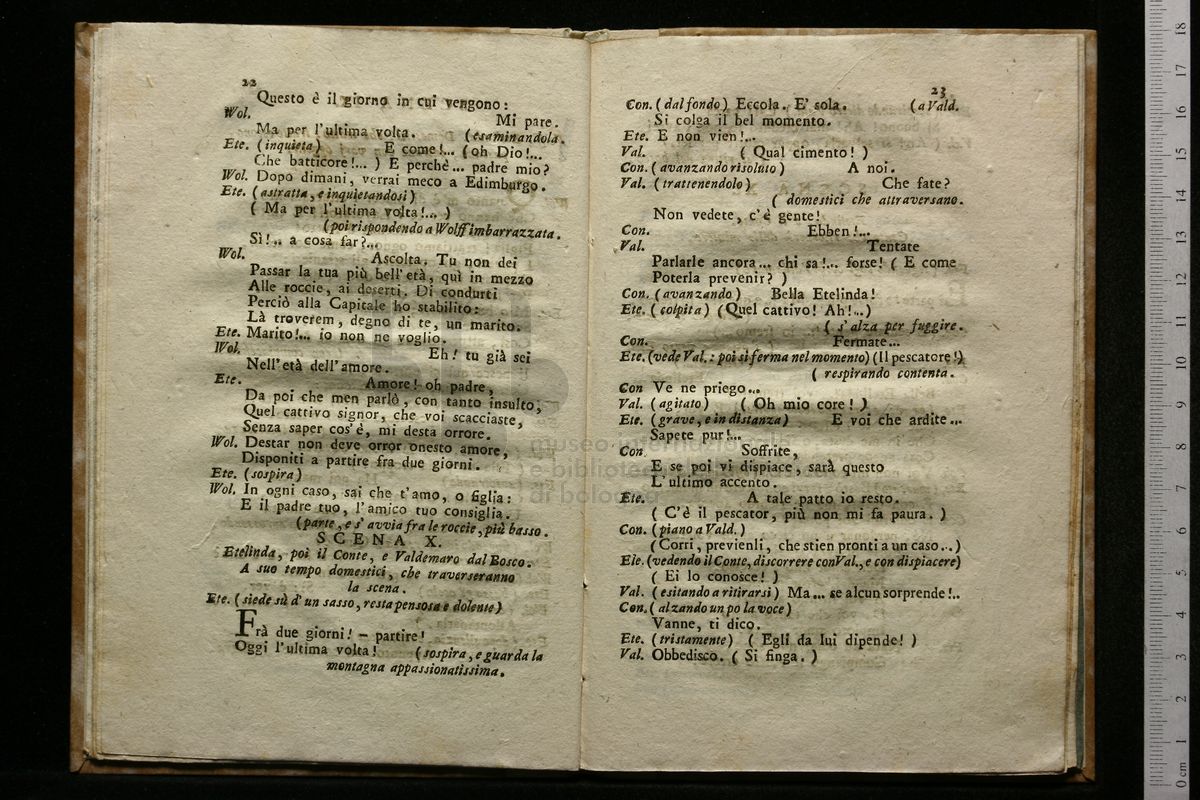 22
Questo è il giorno in cui vengono:
Wol. Mi pare.
Ma per l'ultima volta. (esaminandola.
Ete. (inquieta) E come!... (oh Dio!...
Che batticore!... ) E perchè... padre mio?
Wol. Dopo dimani, verrai meco a Edimburgo.
Ete. (astratta, e inquietandosi)
( Ma per l'ultima volta!... )
(poi rispondendo a Wolff imbarrazzata.
Sì!.. a cosa far?...
Wol. Ascolta. Tu non dei
Passar la tua più bell'età, quì in mezzo
Alle roccie, ai deserti. Di condurti
Perciò alla Capitale ho stabilito:
Là troverem, degno di te, un marito.
Ete. Marito!... io non ne voglio.
Wol. Eh! tu già sei
Nell'età dell'amore.
Ete. Amore! oh padre,
Da poi che men parlò, con tanto insulto,
Quel cattivo signor, che voi scacciaste,
Senza saper cos'è, mi desta orrore.
Wol. Destar non deve orror onesto amore,
Disponiti a partire fra due giorni.
Ete. (sospira)
Wol. In ogni caso, sai che t'amo, o figlia:
E il padre tuo, l'amico tuo consiglia.
(parte, e s'avvia fra le roccie, più basso.
SCENA X.
Etelinda, poi il Conte, e Valdemaro dal Bosco.
A suo tempo domestici, che traverseranno
la scena.
Ete. (siede sù d'un sasso, resta pensosa e dolente)
Frà due giorni! - partire!
Oggi l'ultima volta! (sospira, e guarda la
montagna appassionatissima.
23
Con. (dal fondo) Eccola. E' sola. (a Vald.
Si colga il bel momento.
Ete. E non vien!...
Val. ( Qual cimento! )
Con. (avanzando risoluto) A noi.
Val. (trattenendolo) Che fate?
( domestici che attraversano.
Non vedete, c'è gente!
Con. Ebben!...
Val. Tentate
Parlarle ancora... chi sa!... forse! ( E come
Poterla prevenir? )
Con. (avanzando) Bella Etelinda!
Ete. (colpita) (Quel cattivo! Ah!...)
( s'alza per fuggire.
Con. Fermate...
Ete. (vede Val.: poi si ferma nel momento) (Il pescatore!)
( respirando contenta.
Con Ve ne priego...
Val. (agitato) ( Oh mio core! )
Ete. (grave, e in distanza) E voi che ardite...
Sapete pur!...
Con Soffrite,
E se poi vi dispiace, sarà questo
L'ultimo accento.
Ete. A tale patto io resto.
( C'è il pescator, più non mi fa paura. )
Con. (piano a Vald.)
(Corri, previenli, che stien pronti a un caso...)
Ele. (vedendo il Conte, discorrere con Val., e con dispiacere)
( Ei lo conosce! )
Val. (esitando a ritirarsi) Ma... se alcun sorprende!..
Con. (alzando un po la voce)
Vanne, ti dico.
Ete. (tristamente) ( Egli da lui dipende! )
Val. Obbedisco. ( Si finga. )
museo internazionale
e biblioteca
di bologna
18
17
16
15
14
13
12
11
10
9
8
7
6
5
4
3
2
1
0 cm